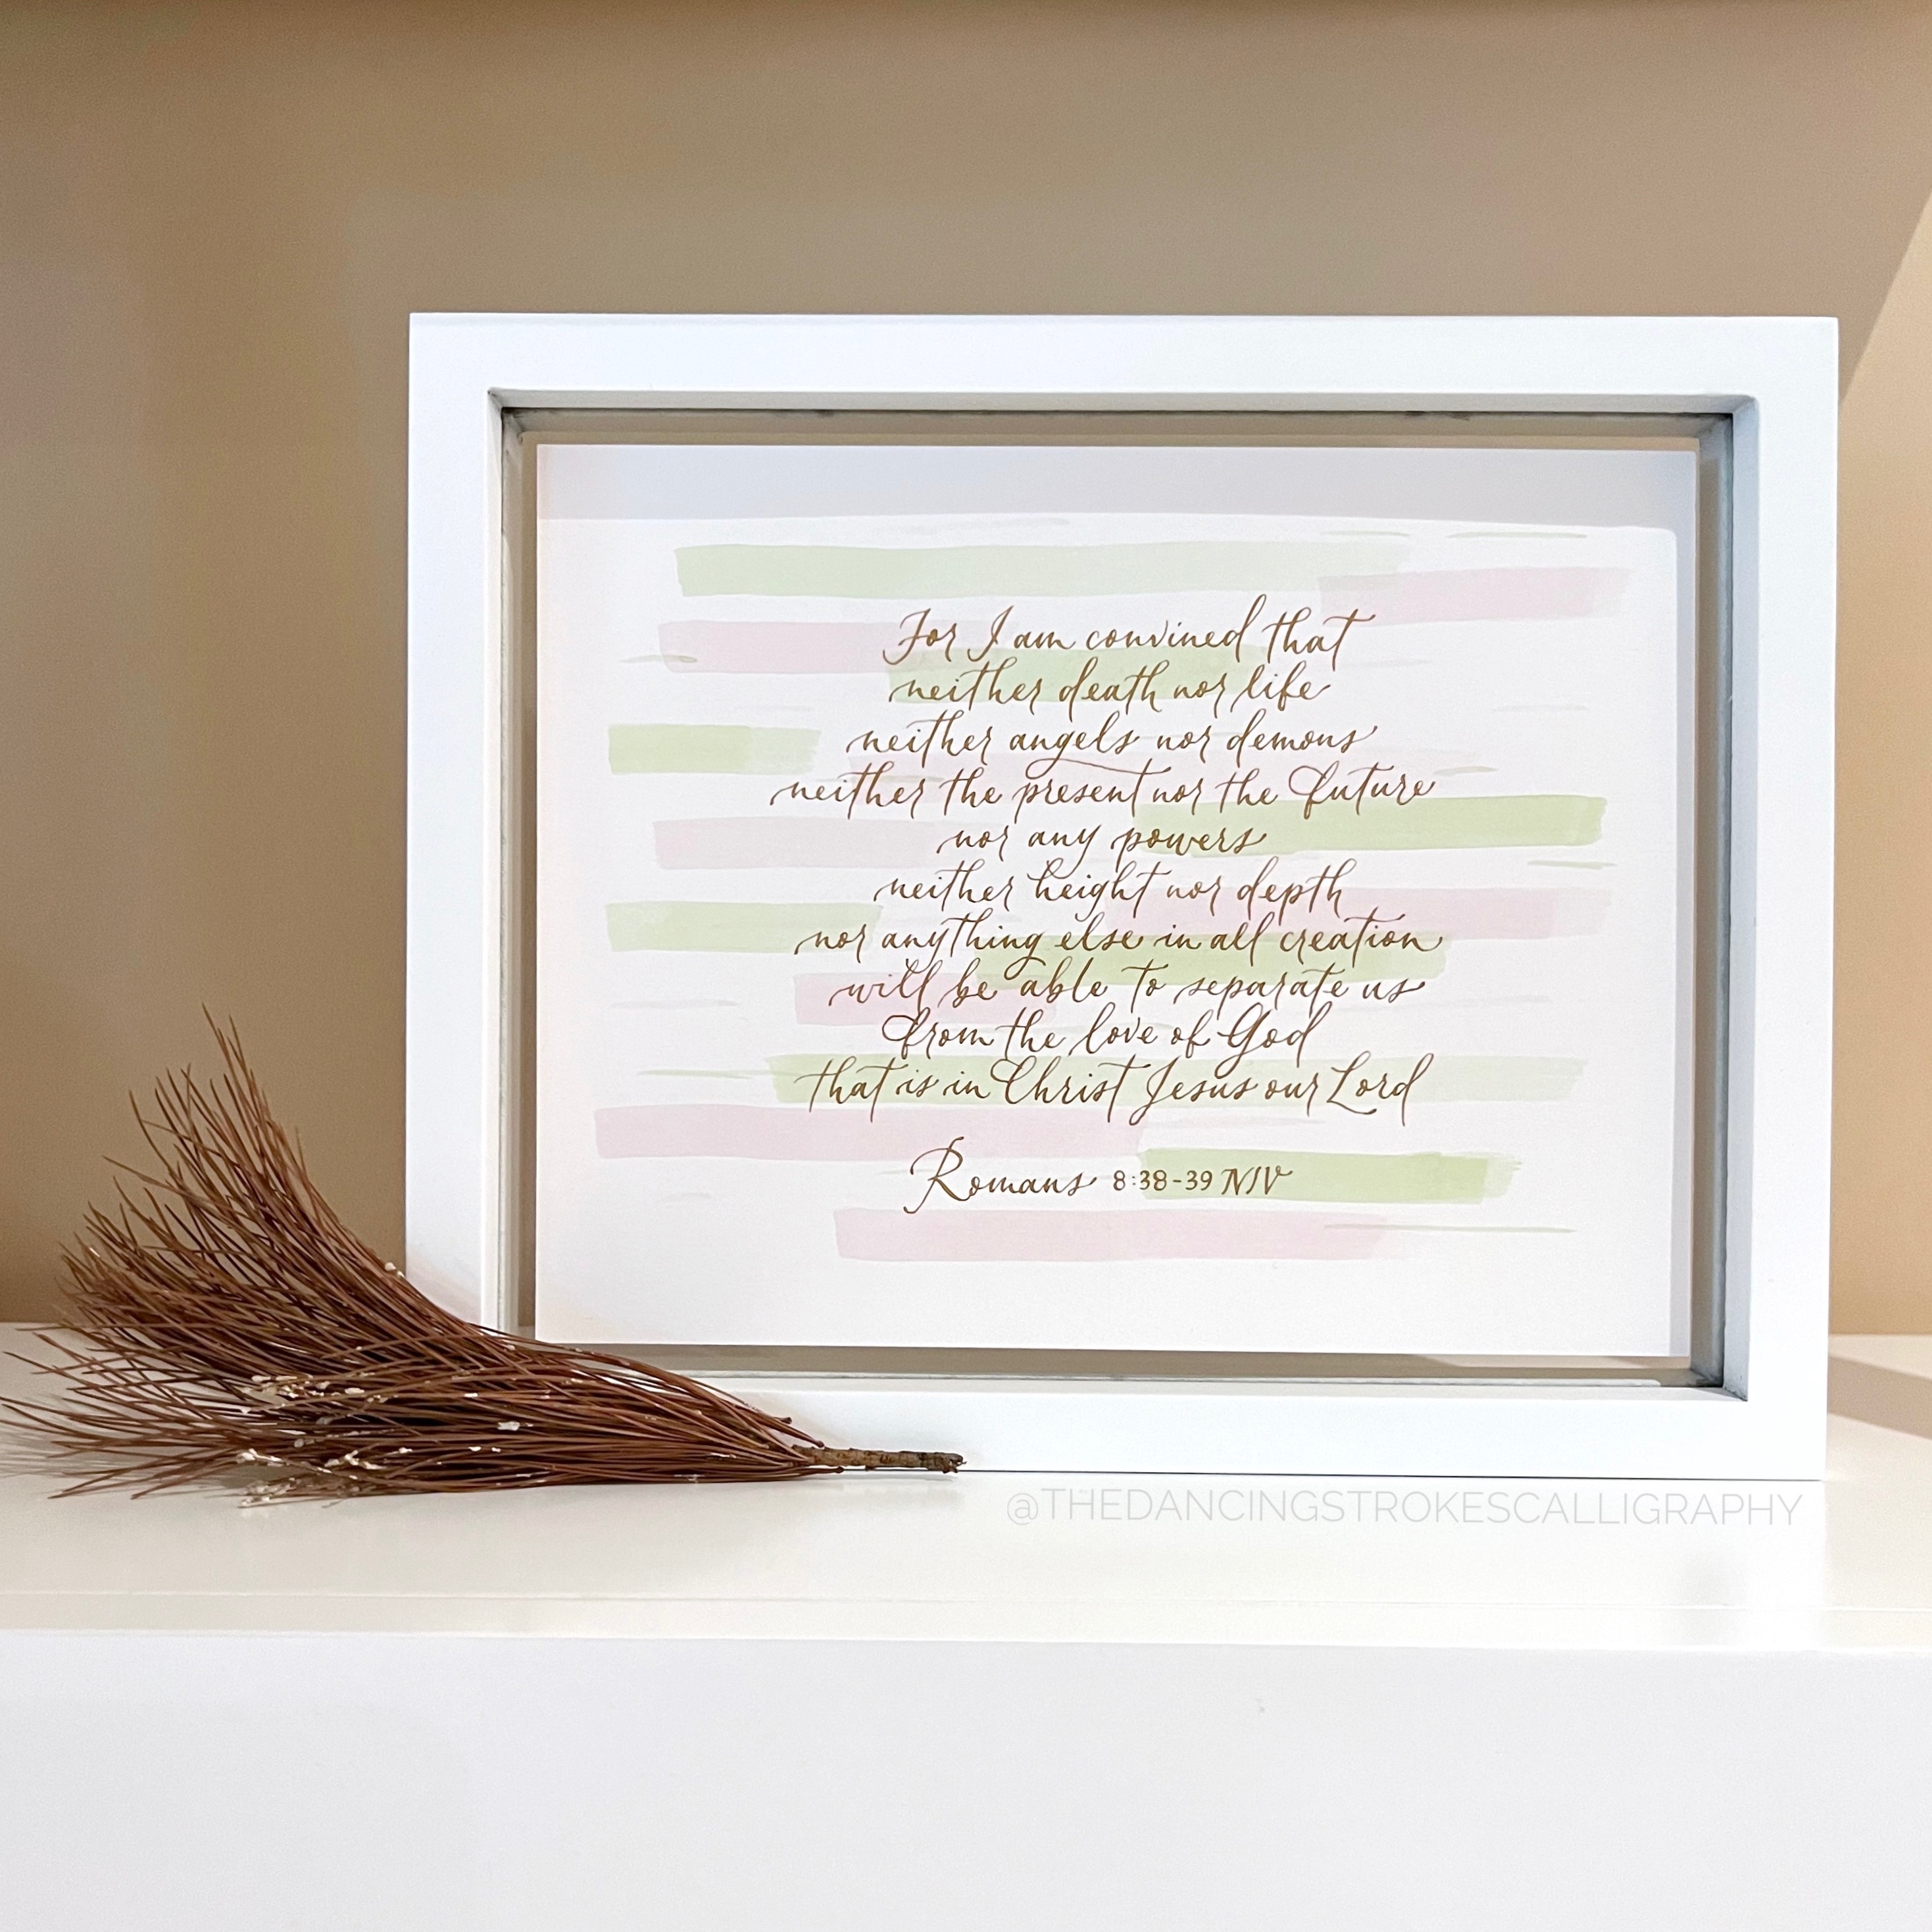 For I am convined that
neither death nor life
neither angels nor demons
neither the present nor the future
nor any powers
neither height nor depth
nor anything else in all creation
will be able to separate us
from the love of God
that is in Christ Jesus our Lord
Romans 8:38-39 NIV
@THEDANCINGSTROKESCALLIGRAPHY